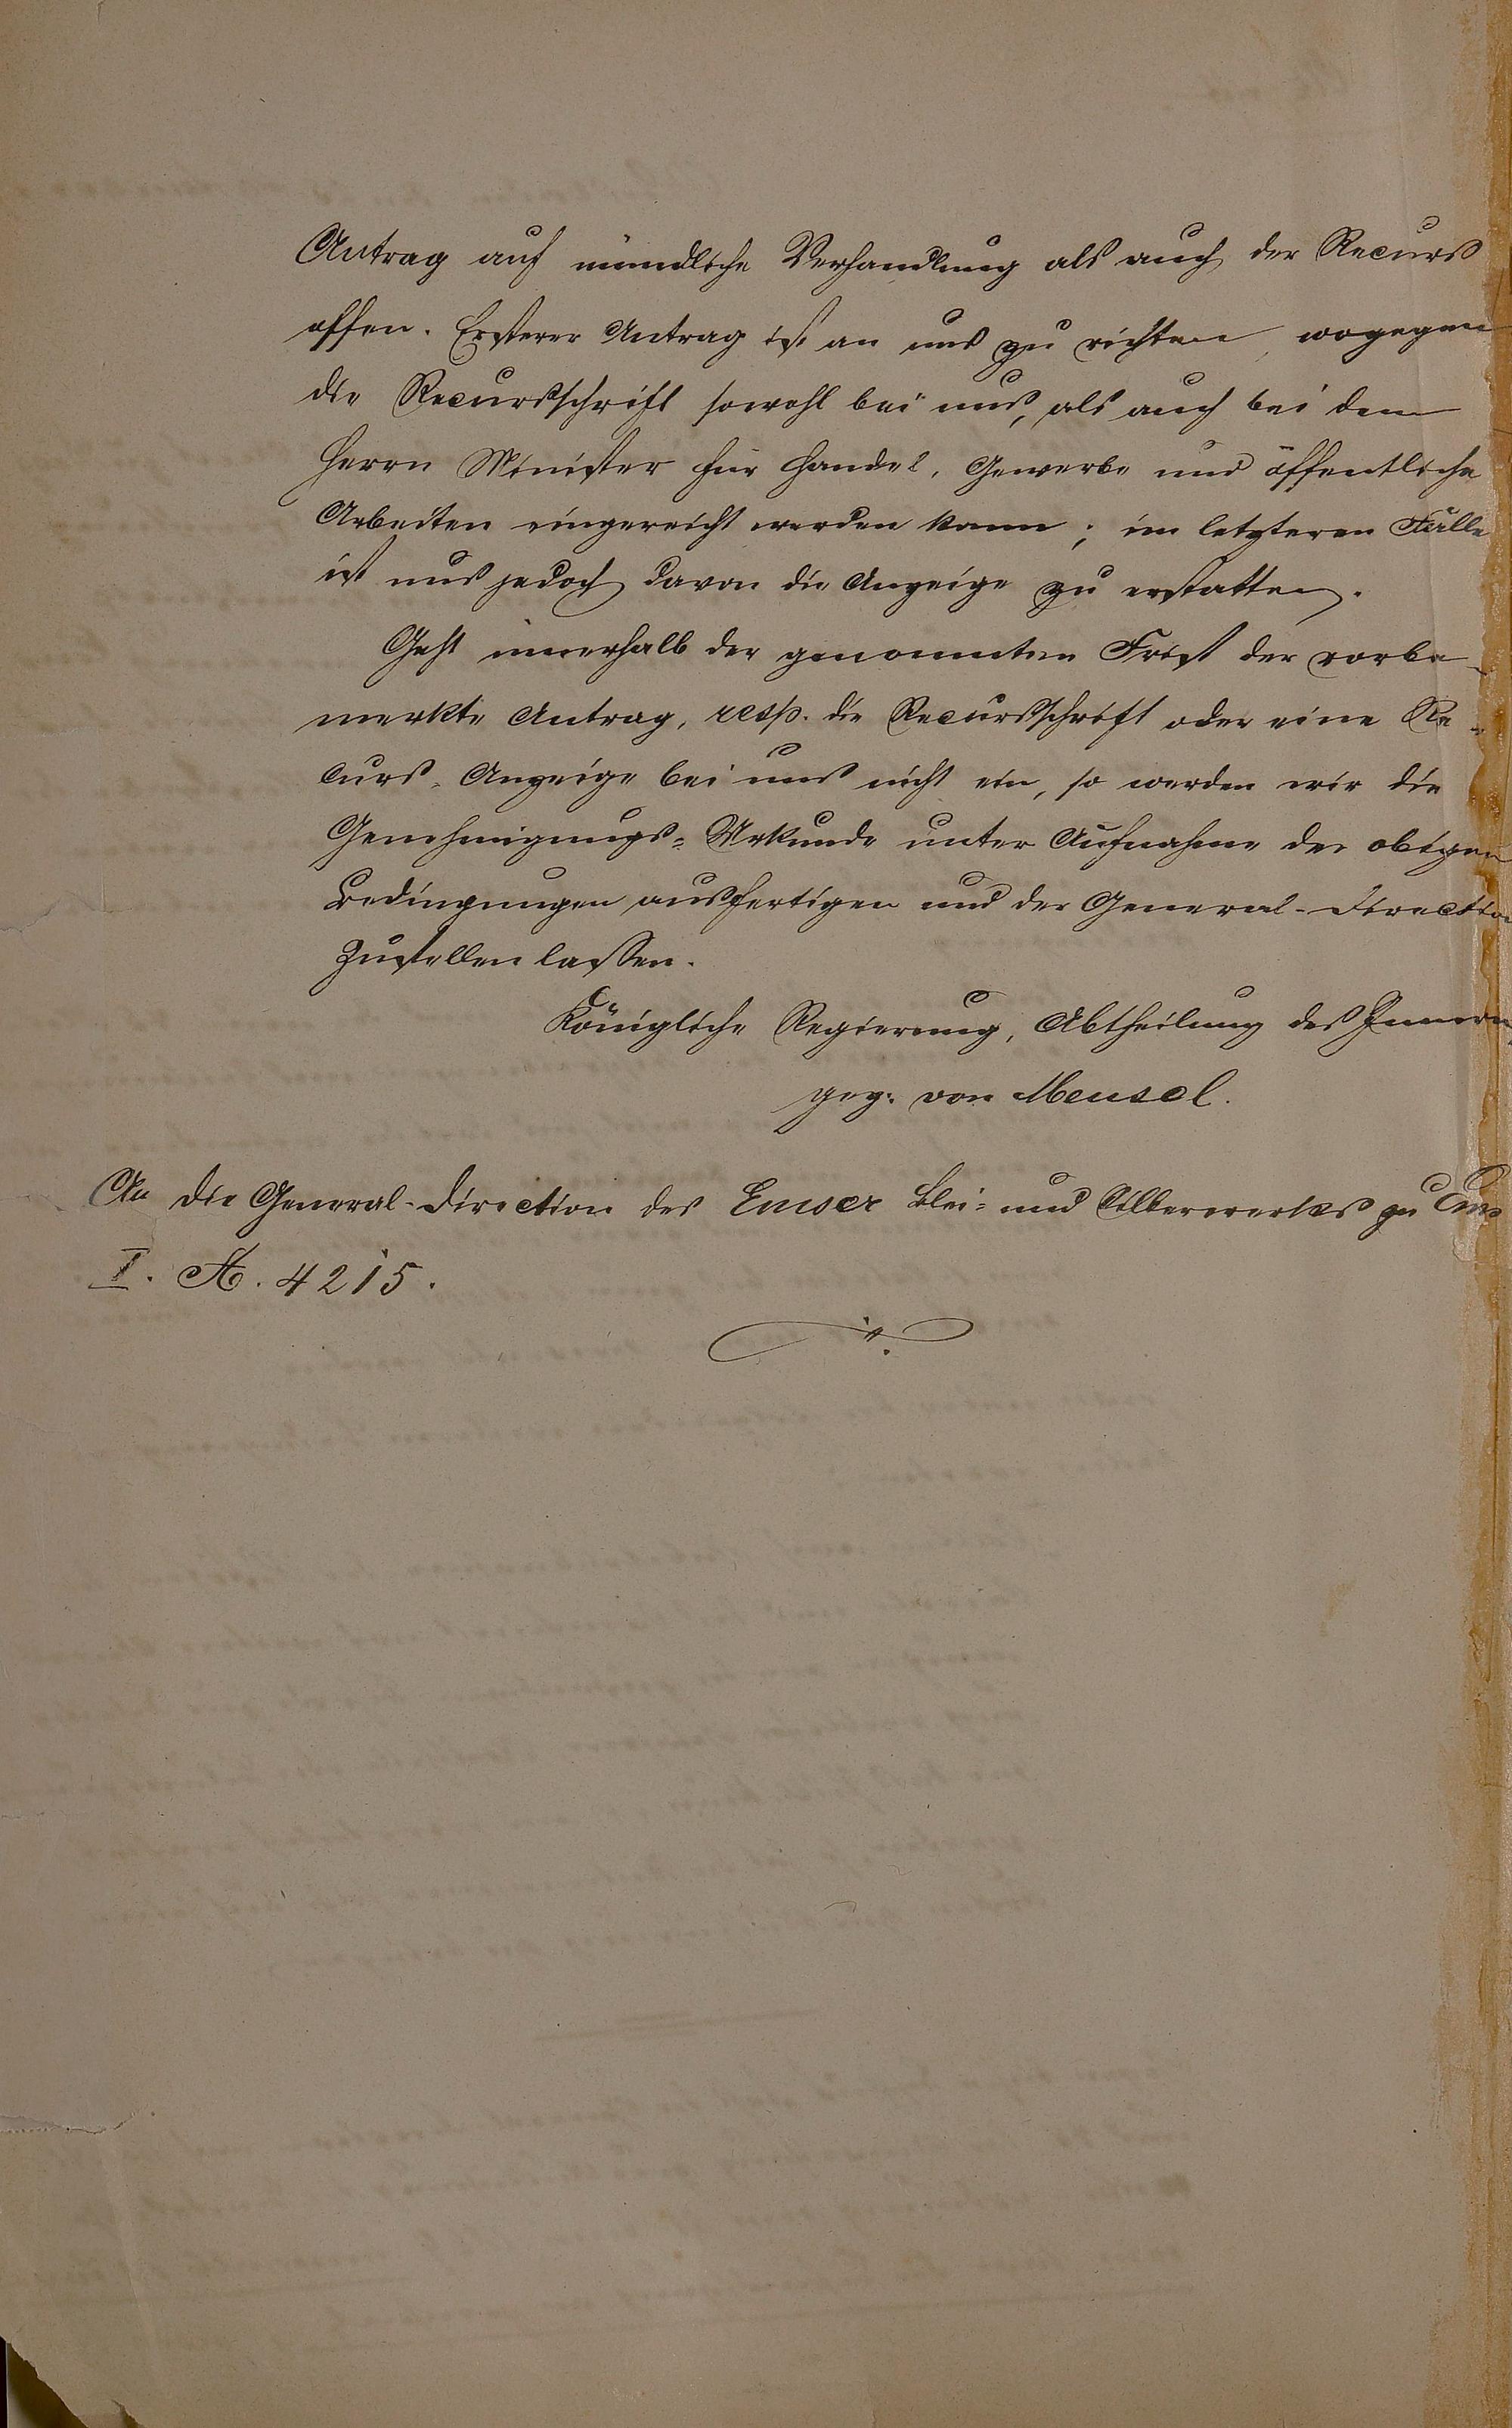 Antrag auf mündliche Verhandlung als auch der Recurs
offen. Ersterer Antrag ist an uns zu richten, wogegen
die Recursschrift sowohl bei uns, als auch bei dem
Herrn Minister für Handel, Gewerbe und öffentliche
Arbeiten eingereicht werden kann; im letzteren Falle
ist uns jedoch davon die Anzeige zu erstatten.
Geht innerhalb der genannten Frist der vorbe-
merkte Antrag, resp. die Recursschrift oder eine Re-
curs-Anzeige bei uns nicht ein, so werden wir die
Genehmigungs-Urkunde unter Aufnahme der obigen
Bedingungen ausfertigen und der General-Direction
zustellen lassen.
Königliche Regierung, Abtheilung des Innern,
gez. von Meusel.
An die General-Direction des Emser Blei- und Silberwerkes zu Ems
I. A. 4215.